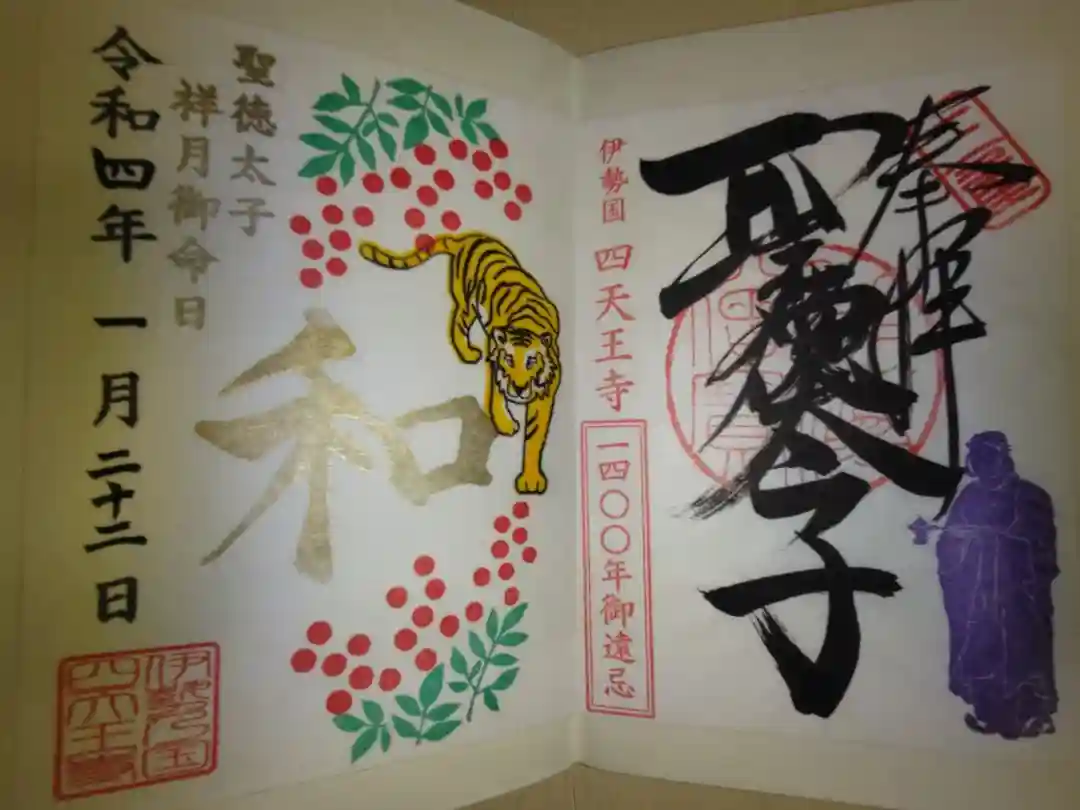 奉拝
聖徳太子
伊勢国 四天王寺
一四〇〇年御遠忌
聖徳太子
祥月御命日
和
令和四年 一月二十二日
伊勢国
四天王寺